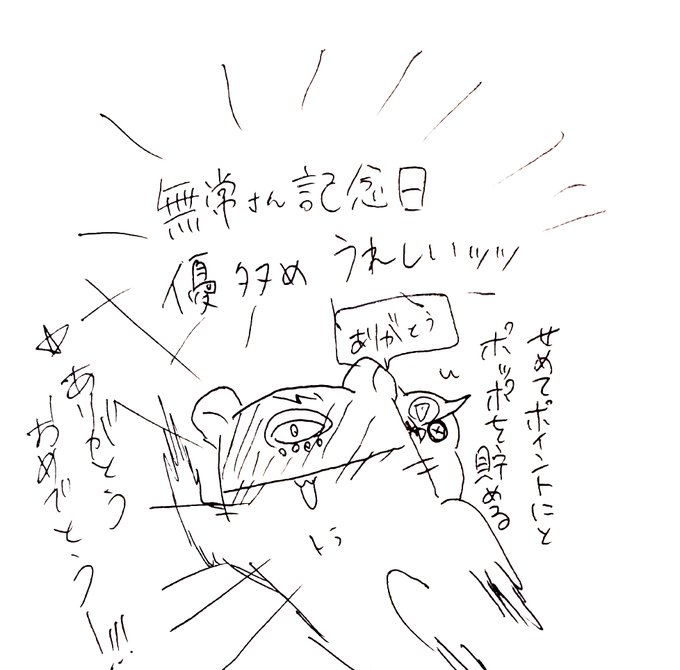 無常さん記念日
優タヌめ うれしいッッ
ありがとう
せめてポイントにと
ポッポを貯める
ありがとう
おめでとうー!!!
トラ